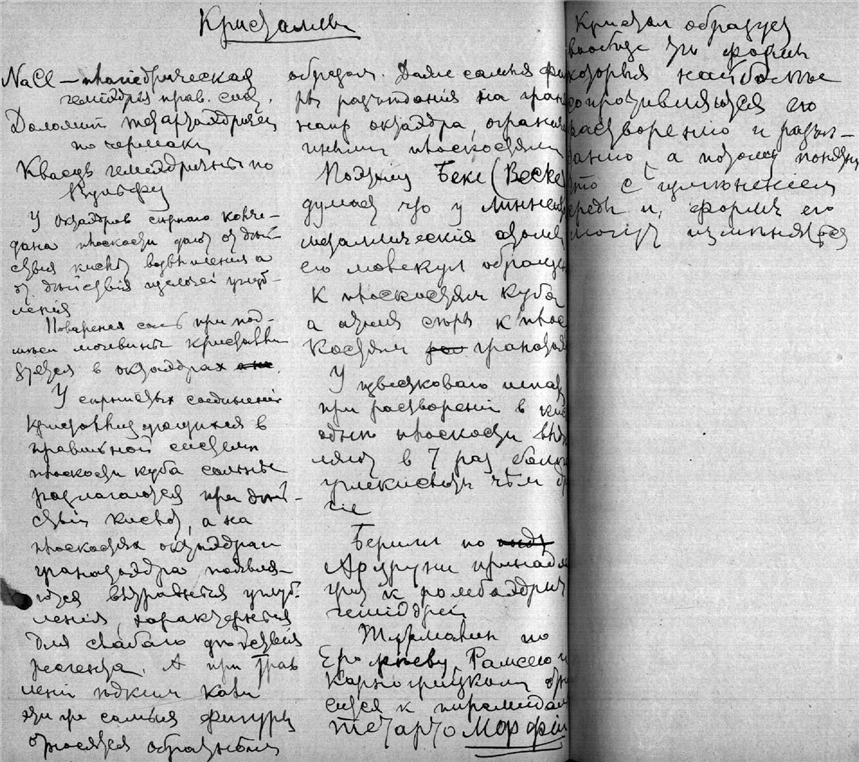 Кристаллы
NaCl — плагіедрическая
геміэдрія прав. сист.
Доломит тетартоэдрически
по чермаки
Кварц гемиэдричны по
Вульфу
У октаэдров сърнаго колче-
дана плоскости дают от дѣй-
ствія кислот возвышения а
от дѣйствія щелочей углуб-
ленія
Поваренная соль при под-
мѣси мочевины кристалли
зуется в октаэдрах
У сърнистых соединеній
Кристаллизующихся в
правильной системѣ
плоскости куба сильнѣе
разлагаются при дѣй-
ствіи кислот, а на
плоскостях октаэдра и
гранатоэдра появля-
ются вытравныя углуб-
ленія, характерныя
для слабаго дѣйствія
реагента. А при трав
леніи ѣдким кали
эти же самыя фигуры
относятся обратным
образом. Даже самыя фигу
ры разъѣдания на гран
напр октаэдра, огранич
иными плоскостями
Поэтому Беке (Becke)
думает что у линнеита
металлическія атомы
его молекул обращены
к плоскостям куба
а атомы сѣры к плос
костям гранатоэдра
У известковаго шпата
при растворенiи в кис
одни плоскости выдѣ
ляют в 7 раз больше
углекислоты чѣм дру
гіе
Берилл по
Арцруни принадле
жит к ромбоэдрич
геміэдрии
Турмалин по
Ерофѣеву, Рамсею и
Карножицкому отно
сится к пирамидаль
тетартоморфіи
Кристал образует
вообще тѣ формы
которыя наиболѣе
сопротивляются его
растворению и разъѣ-
данию, а потому понятно
что с измѣненіем
среды и формы его
могут измѣняться